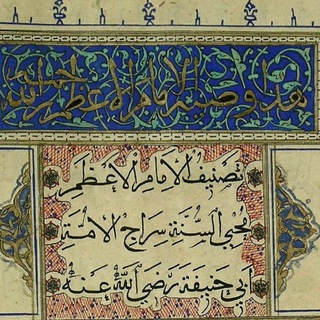 هذه وصية الإمام الأعظم رحمه الله
تصنيف الإمام الأعظم
محيي السنة سراج الأمة
أبي حنيفة رضي الله عنه